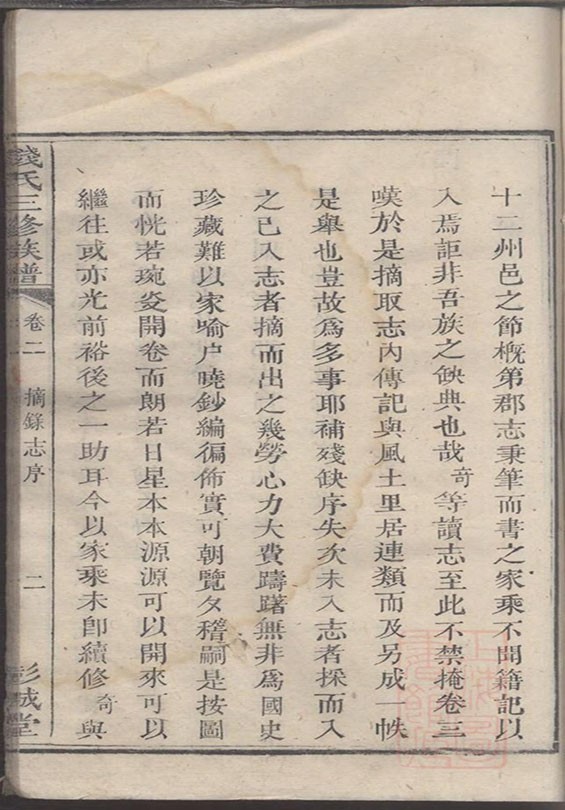 十二州邑之節槪第郡志秉筆而書之家乘不聞籍記以
入焉詎非吾族之缺典也哉奇等讀志至此不禁掩卷三
嘆於是摘取志內傳記與風土里居連類而及另成一帙
是舉也豈故爲多事耶補殘缺序失次未入志者採而入
之已入志者摘而出之幾勞心力大費躊躇無非爲國史
珍藏難以家喻户曉鈔編徧佈實可朝覽夕稽嗣是按圖
而恍若琬琰開卷而朗若日星本本源源可以開來可以
繼往或亦光前裕後之一助耳今以家乘未卽續修奇與
錢氏三修族譜 卷二 摘錄志序 二 彭城堂